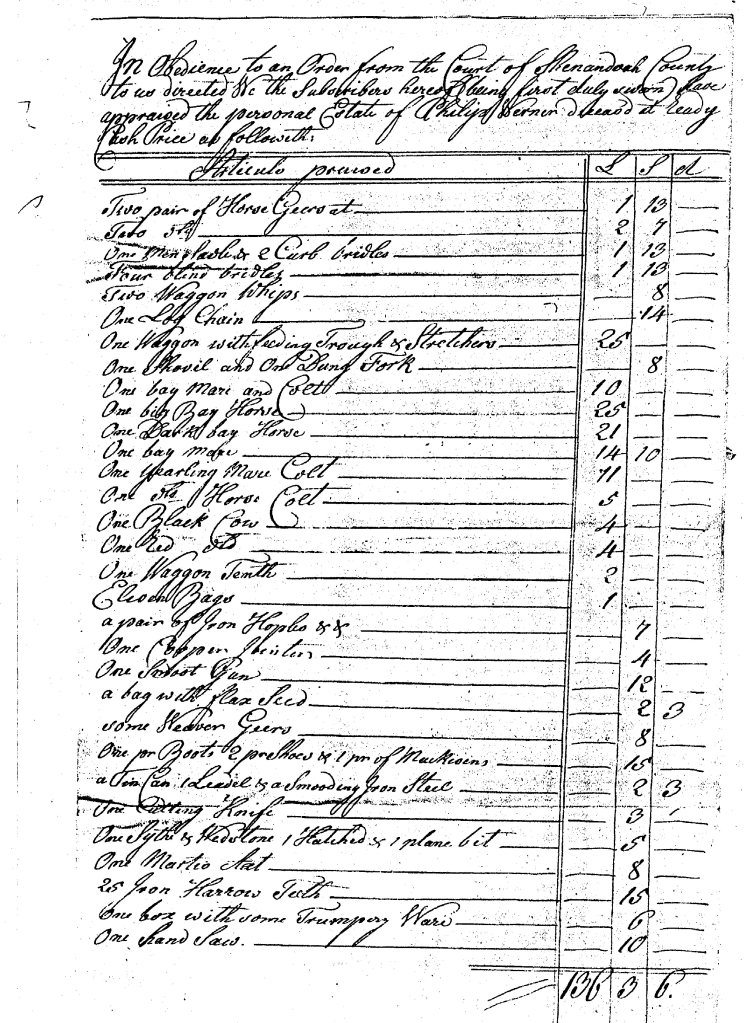 In Obedience to an Order from the Court of Shenandoah County
to us directed We the Subscribers hereof being first duly sworn have
appraised the personal Estate of Philip Werner deceasd at ready
Cash Price as followith:
Articuls praised L S d
Two pair of Horse Geers at — 1 13 —
Two do — 2 7 —
One Men Sadle & 2 Curb bridles — 1 13 —
Four blind bridles — 1 13 —
Two Waggon Whips — — 8 —
One Log Chain — — 14 —
One Waggon with feeding Trough & Stretchers — 25 — —
One Shovil and One Dung Fork — — 8 —
One bay Mare and Colt — 10 — —
One big Bay Horse — 25 — —
One Dark bay Horse — 21 — —
One bay mare — 14 10 —
One yearling Mare Colt — 11 — —
One do Horse Colt — 5 — —
One Black Cow — 4 — —
One Red do — 4 — —
One Waggon Tenth — 2 — —
Eleven Bags — 1 — —
a pair of Iron Hoples && — — 7 —
One Copper — — 4 —
One Smoot Gun — — 12 —
a bag with flax Seed — — 2 3
some Weaver Geers — — 8 —
One pr Boots 2 pr Shoes & 1 pr of Muckisins — — 15 —
a Tin Can 1 Leadel & a Smooding Iron Steel — — 2 3
One Cutting Knife — — 3 —
One Sythe & Wedstone 1 Hatched & 1 plane bit — — 5 —
One Martis Axt — — 8 —
25 Iron Harrow Teeth — — 15 —
one box with some Trumpery Ware — — 6 —
One hand Saw. — — 10 —
136 3 6.